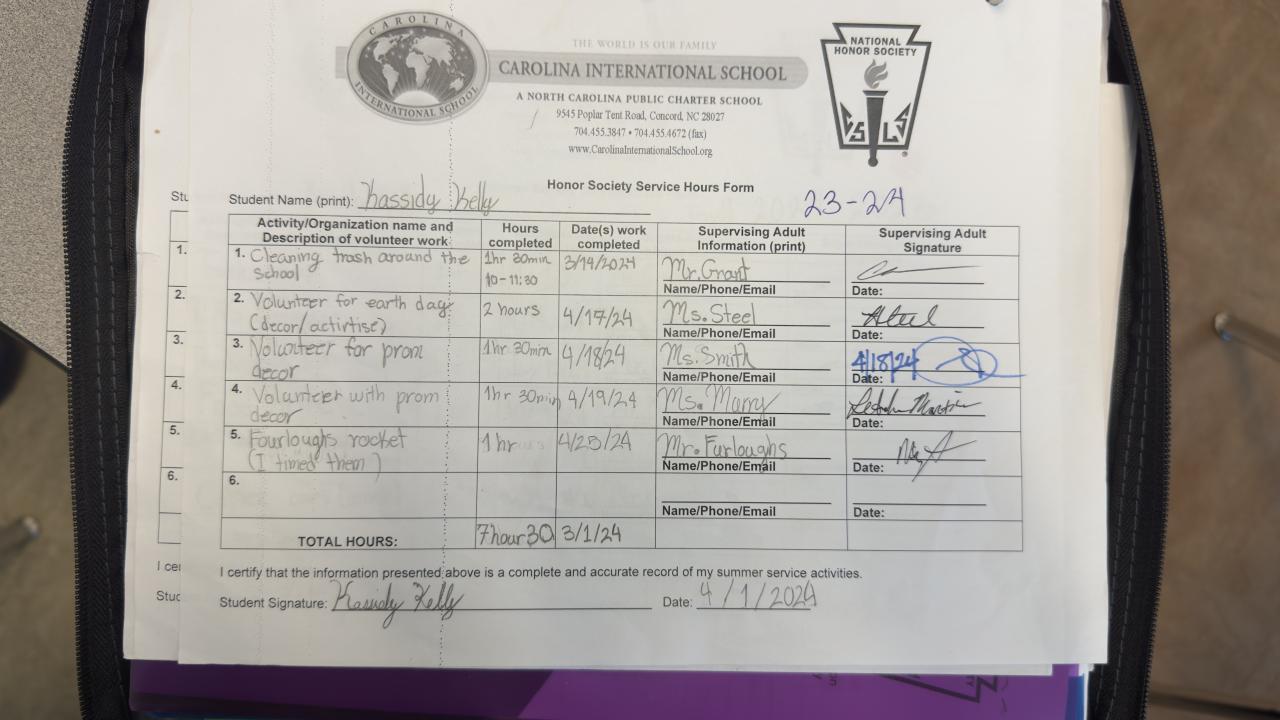 CAROLINA
INTERNATIONAL SCHOOL
THE WORLD IS OUR FAMILY
CAROLINA INTERNATIONAL SCHOOL
A NORTH CAROLINA PUBLIC CHARTER SCHOOL
9545 Poplar Tent Road, Concord, NC 28027
704.455.3847 • 704.455.4672 (fax)
www.CarolinaInternationalSchool.org
NATIONAL
HONOR SOCIETY
Honor Society Service Hours Form
23-24
Student Name (print): Kassidy Kelly
Activity/Organization name and
Description of volunteer work
Hours
completed
Date(s) work
completed
Supervising Adult
Information (print)
Supervising Adult
Signature
1. Cleaning trash around the
school
1hr 30min
10-11:30
3/14/2024
Mr. Grant
Name/Phone/Email
Date:
2. Volunteer for earth day
(decor/actirtise)
2 hours
4/17/24
Ms. Steel
Name/Phone/Email
Date:
3. Volunteer for prom
decor
1hr 30min
4/18/24
Ms. Smith
Name/Phone/Email
4/18/24
Date:
4. Volunteer with prom
decor
1hr 30min
4/19/24
Ms.
Name/Phone/Email
Date:
5. Fourloughs rocket
(I timed them)
1 hr
4/25/24
Mr. Furloughs
Name/Phone/Email
Date:
6.
Name/Phone/Email
Date:
TOTAL HOURS:
7hour30
3/1/24
I certify that the information presented above is a complete and accurate record of my summer service activities.
Student Signature: Kassidy Kelly
Date: 4/1/2024
Stu
1.
2.
3.
4.
5.
6.
I cer
Stud